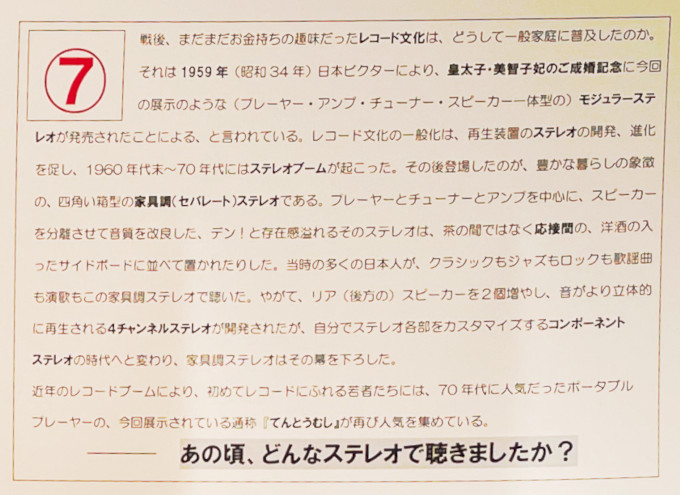 ⑦
戦後、まだまだお金持ちの趣味だったレコード文化は、どうして一般家庭に普及したのか。
それは1959年（昭和34年）日本ビクターにより、皇太子・美智子妃のご成婚記念に今回
の展示のような（プレーヤー・アンプ・チューナー・スピーカー一体型の）モジュラーステ
レオが発売されたことによる、と言われている。レコード文化の一般化は、再生装置のステレオの開発、進化
を促し、1960年代末～70年代にはステレオブームが起こった。その後登場したのが、豊かな暮らしの象徴
の、四角い箱型の家具調（セパレート）ステレオである。プレーヤーとチューナーとアンプを中心に、スピーカー
を分離させて音質を改良した、デン！と存在感溢れるそのステレオは、茶の間ではなく応接間の、洋酒の入
ったサイドボードに並べて置かれたりした。当時の多くの日本人が、クラシックもジャズもロックも歌謡曲
も演歌もこの家具調ステレオで聴いた。やがて、リア（後方の）スピーカーを2個増やし、音がより立体的
に再生される4チャンネルステレオが開発されたが、自分でステレオ各部をカスタマイズするコンポーネント
ステレオの時代へと変わり、家具調ステレオはその幕を下ろした。
近年のレコードブームにより、初めてレコードにふれる若者たちには、70年代に人気だったポータブル
プレーヤーの、今回展示されている通称『てんとうむし』が再び人気を集めている。
あの頃、どんなステレオで聴きましたか？